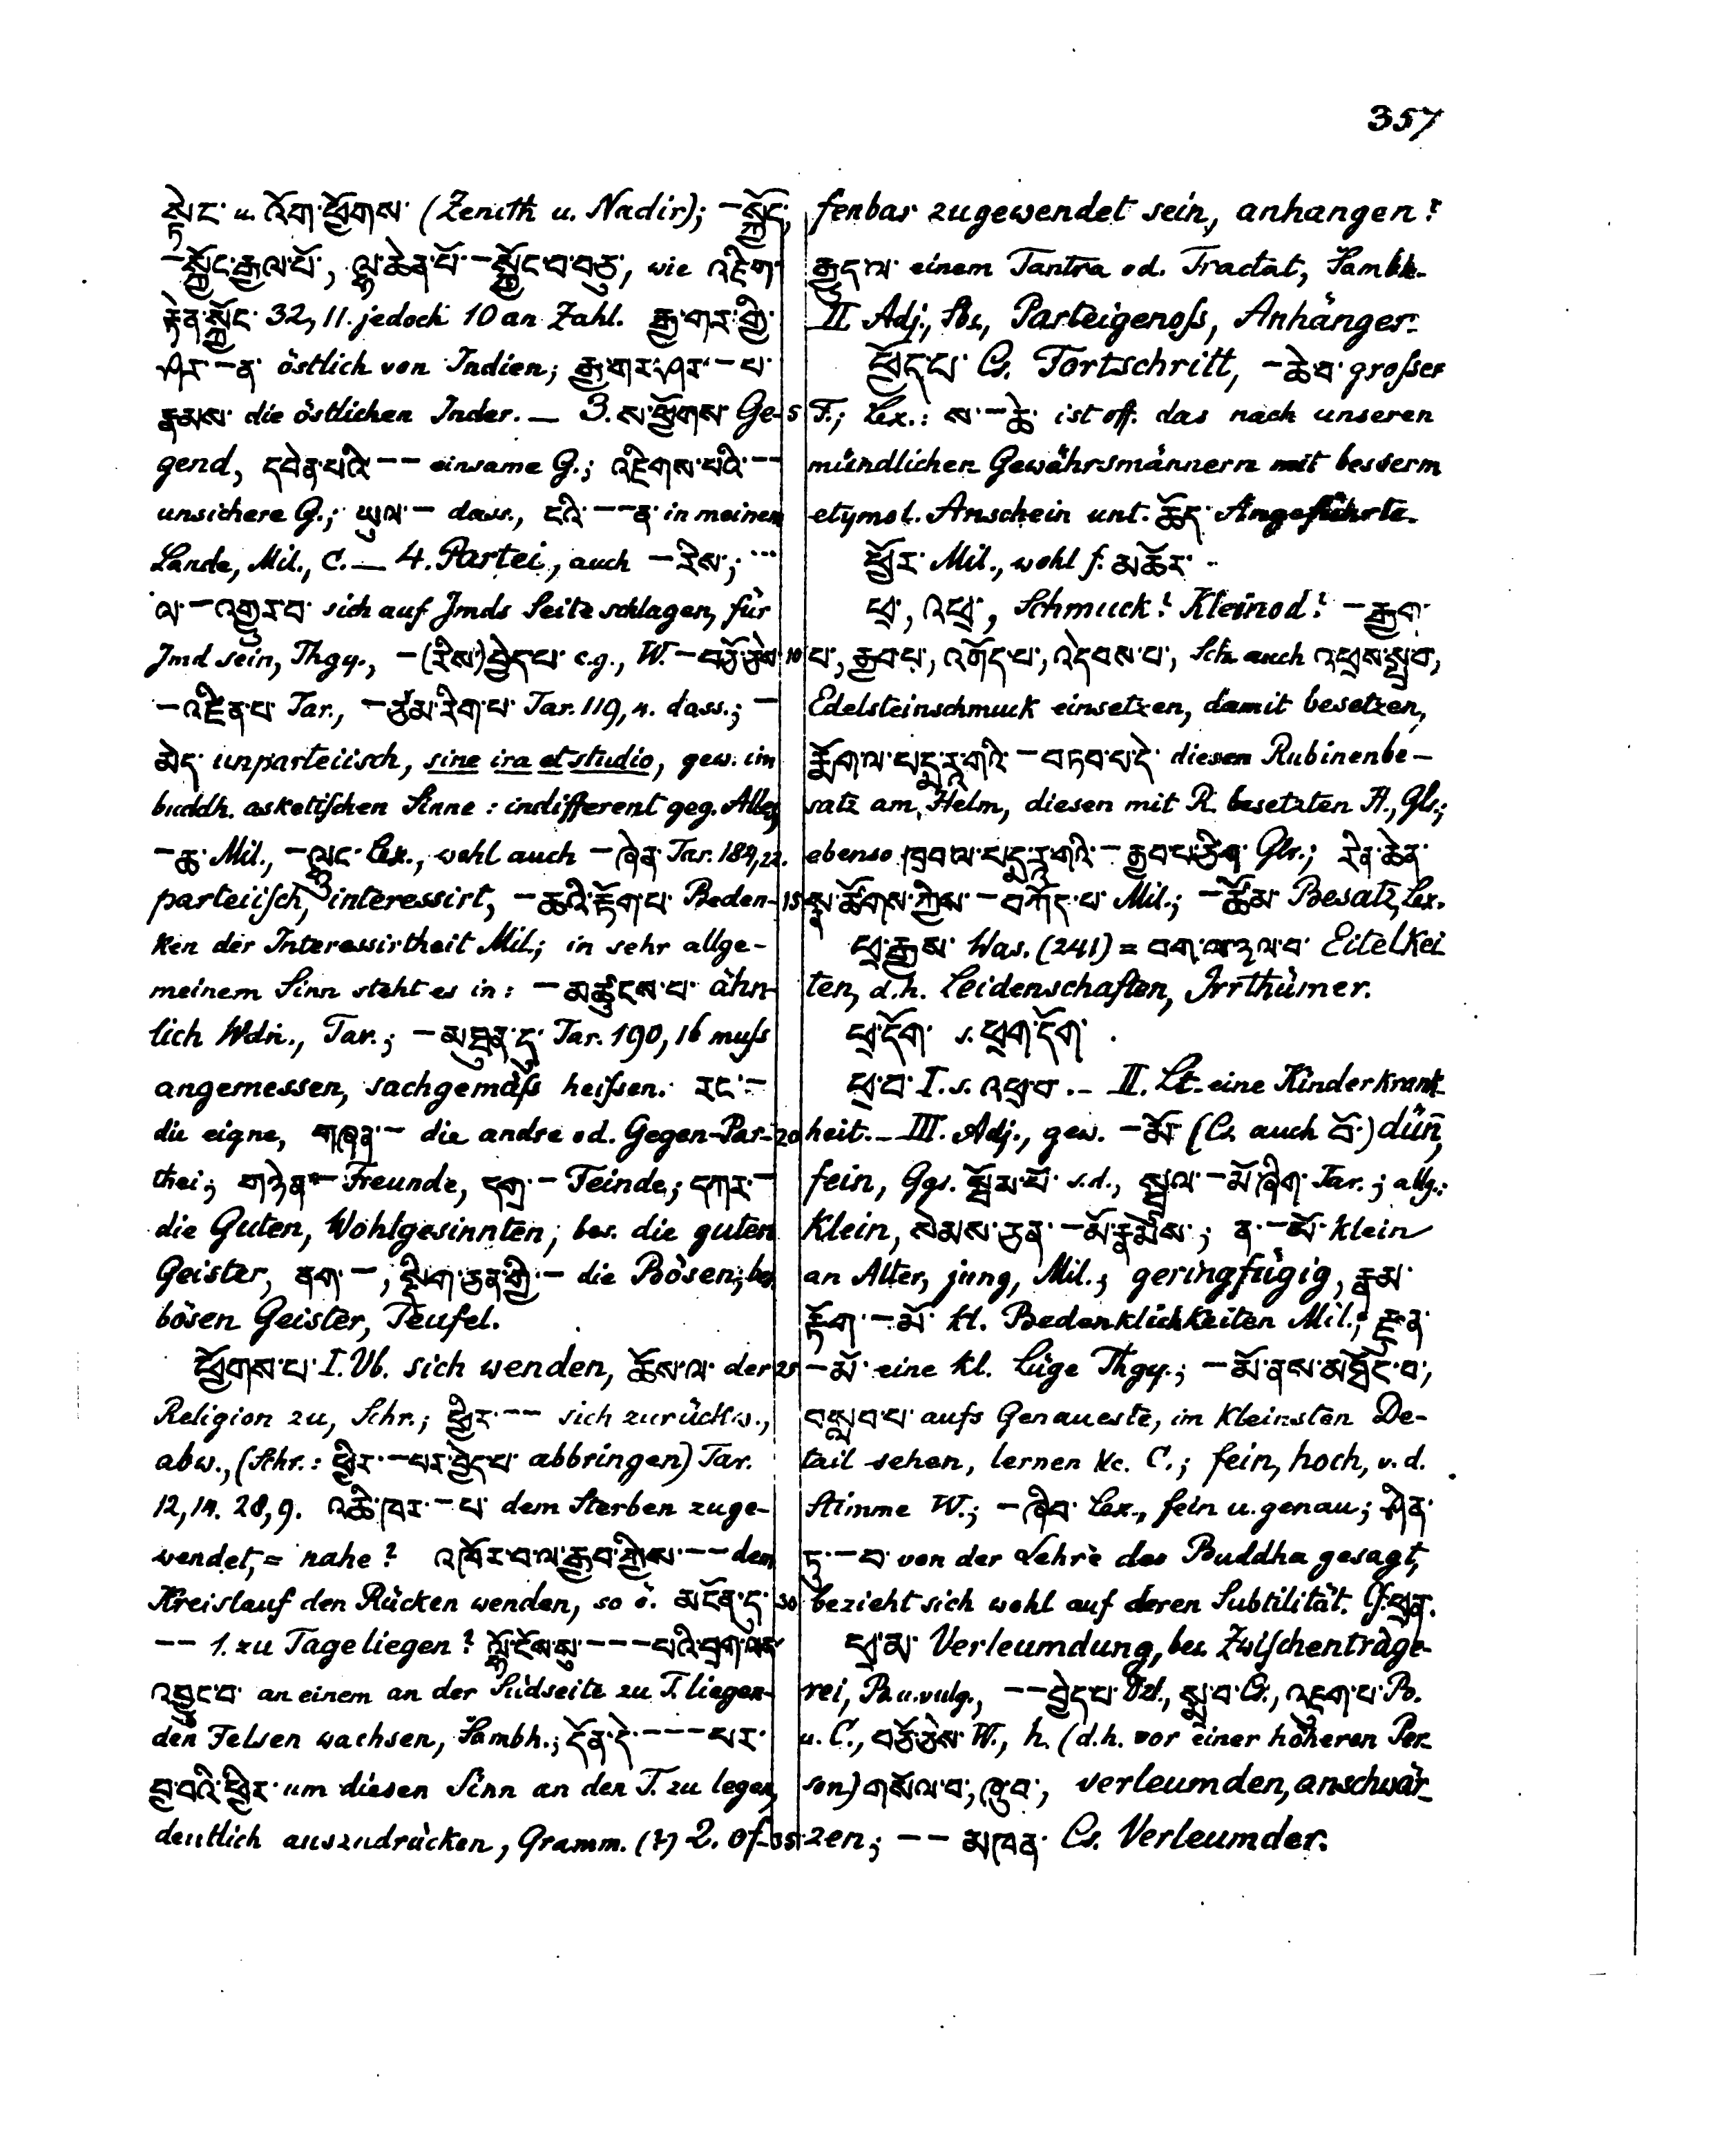 357
སྟེང་ u. འོག་ཕྱོགས་ (Zenith u. Nadir); –སྐྱོང་,
–སྐྱོང་རྒྱལ་པོ་, ལྷ་ཆེན་པོ་–སྐྱོང་བ་བཅུ་, wie འཇིག་
རྟེན་སྐྱོང་ 32, 11. jedoch 10 an Zahl. རྒྱ་གར་གྱི་
ཤར་–ན་ östlich von Indien; རྒྱ་གར་ཤར་–པ་
རྣམས་ die östlichen Inder. — 3. ས་ཕྱོགས་ Ge- 5
gend, དབེན་པའི་–– einsame G.; འཇིགས་པའི་––
unsichere G.; ཡུལ་– dass., ངའི་––ན་ in meinem
Lande, Mil., C. — 4. Partei, auch –རིས་; ...
ལ་–འགྱུར་བ་ sich auf Jmds Seite schlagen, für
Jmd sein, Thgy., –(རིས་)བྱེད་པ་ c.g., W. –བཅོ་ཅེས་ 10
–འཛིན་པ་ Tar., –ཙམ་རིག་པ་ Tar. 119, 4. dass.; –
མེད་ unparteiisch, sine ira et studio, gew. im
buddh. asketischen Sinne : indifferent geg. Alles,
–ཆ་ Mil., –ལྷུང་ Lex., wohl auch –ཞེན་ Tar. 184, 22.
parteiisch, interessirt, –ཆའི་རྟོག་པ་ Beden- 15
ken der Interessirtheit Mil.; in sehr allge-
meinem Sinn steht es in : –མཚུངས་པ་ ähn-
lich Wdn., Tar.; –མཐུན་དུ་ Tar. 190, 16 muss
angemessen, sachgemäss heissen. རང་–
die eigne, གཞན་– die andre od. Gegen-Par- 20
thei; གཉེན་– Freunde, དགྲ་– Feinde; དཀར་–
die Guten, Wohlgesinnten; bes. die guten
Geister, ནག་–, སྡིག་ཅན་གྱི་– die Bösen; bes.
bösen Geister, Teufel.
ཕྱོགས་པ་ I. Vb. sich wenden, ཆོས་ལ་ der 25
Religion zu, Schr.; ཕྱིར་–– sich zurückw.,
abw., (Schr.: ཕྱིར་–པར་བྱེད་པ་ abbringen) Tar.
12, 14. 28, 9. འཆི་ཁར་–པ་ dem Sterben zuge-
wendet, = nahe? འཁོར་བ་ལ་རྒྱབ་ཀྱིས་–– dem
Kreislauf den Rücken wenden, so ö. མངོན་དུ་ 30
–– 1. zu Tage liegen? ལྷོ་ངོས་སུ་–––པའི་བྲག་ལས་
འབྱུང་བ་ an einem an der Südseite zu T. liegen-
den Felsen wachsen, Sambh.; དོན་དེ་–––པར་
བྱ་བའི་ཕྱིར་ um diesen Sinn an den T. zu legen,
deutlich auszudrücken, Gramm. (?) 2. of- 35
fenbar zugewendet sein, anhangen?
རྒྱུད་ལ་ einem Tantra od. Tractat, Sambh.
II Adj., Sbs., Parteigenoss, Anhänger.
ཕྱོད་པ་ Cs. Fortschritt, –ཆེ་བ་ grosser
F.; Lex.: ས་–ཆེ་ ist off. das nach unseren
mündlichen Gewährsmännern mit besserm
etymol. Anschein unt. ཆོད་ Angeführte.
ཕྱོར་ Mil., wohl f. མཆོར་
ཕྲ་, འཕྲ་, Schmuck? Kleinod? –རྒྱག་
པ་, རྒྱབ་པ་, འགོད་པ་, འདེབས་པ་, Sch. auch འཕྲས་སྤྲབ་,
Edelsteinschmuck einsetzen, damit besetzen,
རྨོག་ལ་པདྨ་རཱ་གའི་–བཏབ་པ་དེ་ diesen Rubinenbe-
satz am Helm, diesen mit R. besetzten H., Glr.;
ebenso ཁྲབ་ལ་པདྨ་རཱ་གའི་–རྒྱབ་པ་ཅིག་ Glr.; རིན་ཆེན་
སྣ་ཚོགས་ཀྱིས་–བཀོད་པ་ Mil.; –ཚོམ་ Besatz, Lex.
ཕྲ་རྒྱས་ Was. (241) = བག་ལ་ཉལ་བ་ Eitelkei
ten, d.h. Leidenschaften, Irrthümer.
ཕྲ་དོག་ s. ཕྲག་དོག་
ཕྲ་བ་ I. s. འཕྲ་བ་. – II. Lt. eine Kinderkrank-
heit. – III. Adj., gew. –མོ་ (Cs. auch བོ་) dün̄,
fein, Ggs. སྦོམ་པོ་ s.d., སྤྲུལ་–མོ་ཞིག་ Tar.; allg.:
klein, སེམས་ཅན་–མོ་རྣམས་; ན་–མོ་ klein
an Alter, jung, Mil.; geringfügig, རྣམ་
རྟོག་–མོ་ kl. Bedenklichkeiten Mil.; རྫུན་
–མོ་ eine kl. Lüge Thgy.; –མོ་ནས་མཐོང་བ་,
བསླབ་པ་ aufs Genaueste, im kleinsten De-
tail sehen, lernen &c. C.; fein, hoch, v. d.
Stimme W.; –ཞིབ་ Lex., fein u. genau; ཤིན་
ཏུ་–བ་ von der Lehre des Buddha gesagt,
bezieht sich wohl auf deren Subtilität. Cf. ཕྲན་.
ཕྲ་མ་ Verleumdung, bes. Zwischenträge-
rei, B. u. vulg., ––བྱེད་པ་ Dzl., སྨྲ་བ་ Cs., འཇུག་པ་ Po.
u. C., བཅོ་ཅེས་ W., h. (d.h. vor einer höheren Per-
son) གསོལ་བ་, ཞུ་བ་, verleumden, anschwär-
zen; –– མཁན་ Cs. Verleumder.